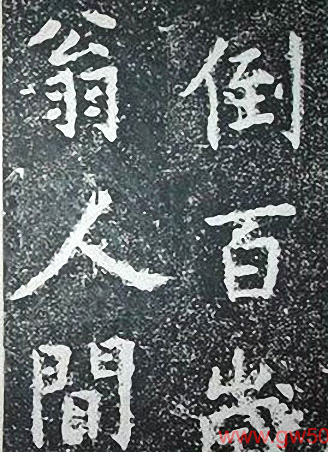 倒百歲
翁人間
www.gw50